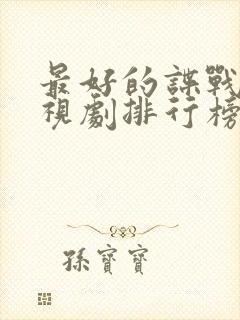 最好的諜戰
視劇排行榜
孫寶寶